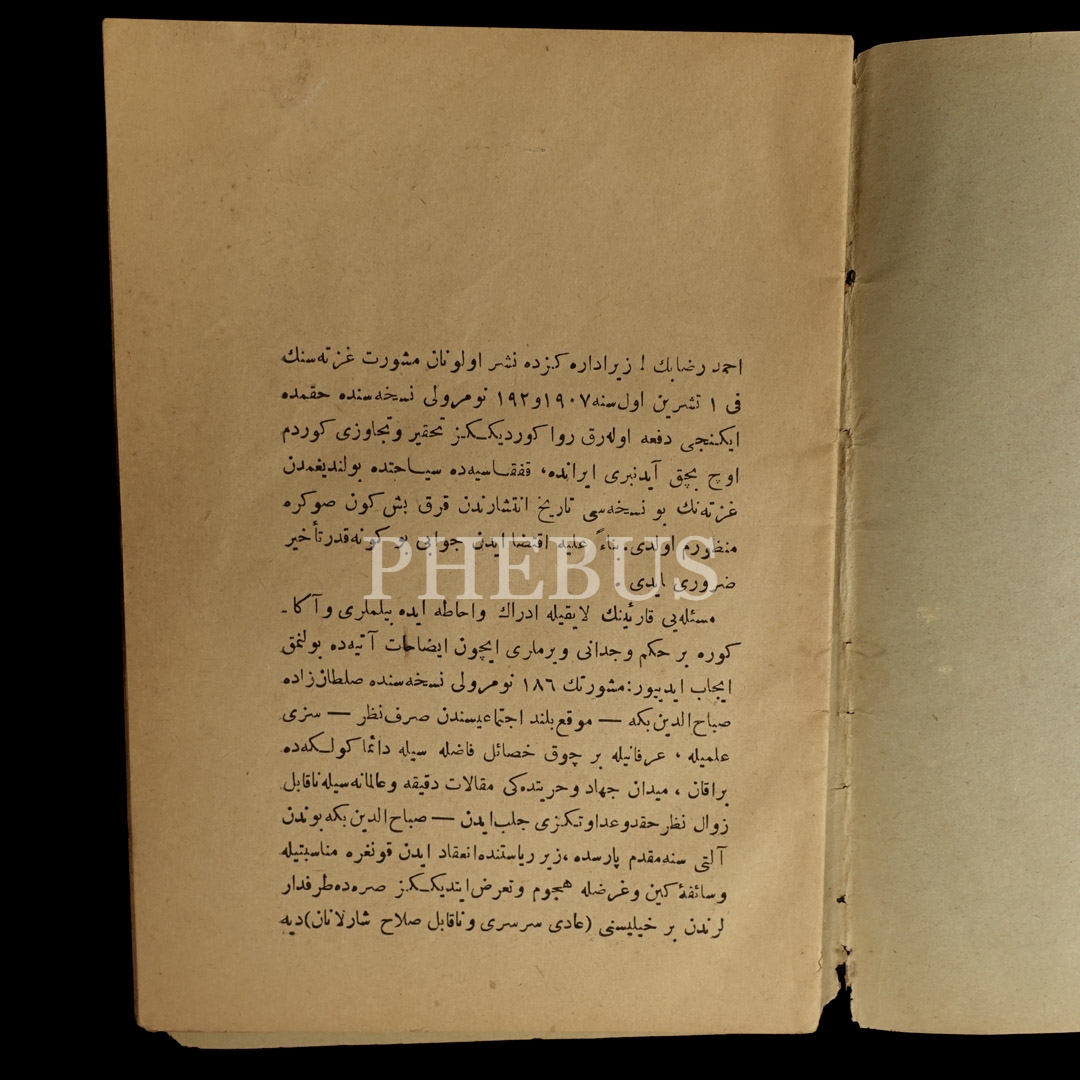 احمد رضا بك ! زير اداره كزده نشر اولونان مشورت غزته‌سنك
فى ۱ تشرين اول سنه ۱۹۰۷ و ۱۹۲ نومرولى نسخه‌سنده حقمده
ايكنجى دفعه اوله‌رق روا كورديككز تحقير وتجاوزى كوردم
اوچ بچق آيدنبرى ايرانده، قفقاسيه‌ده سياحتده بولنديغمدن
غزته‌نك بو نسخه‌سى تاريخ انتشارندن قرق بش كون صوكره
منظورم اولدى. بناءً عليه اقتضا ايدن جوابى بو كونه قدر تأخير
ضرورى ايدى .
PHEBUS
مسئله‌يى قارئينك لايقيله ادراك واحاطه ايده بيلملرى وآ كا ـ
كوره بر حكم وجدانى ويرملرى ايچون ايضاحات آتيه‌ده بولنمق
ايجاب ايدييور: مشورتك ۱۸٦ نومرولى نسخه‌سنده صلطان زاده
صباح الدين بكه — موقع بلند اجتماعيسندن صرف نظر — سزى
علميله ، عرفانيله بر چوق خصائل فاضله سيله دائما كولكه‌ده
براقان ، ميدان جهاد وحريتده‌كى مقالات دقيقه وعالمانه سيله ناقابل
زوال نظر حقد وعداوتكزى جلب ايدن — صباح الدين بكه بوندن
آلتى سنه مقدم پارسده ، زير رياستنده انعقاد ايدن قونغره مناسبتيله
وسائقۀ كين وغرضله هجوم وتعرض ايتديككز صره‌ده طرفدار
لرندن بر خيليسنى (عادى سرسرى وناقابل صلاح شارلاتان) ديه